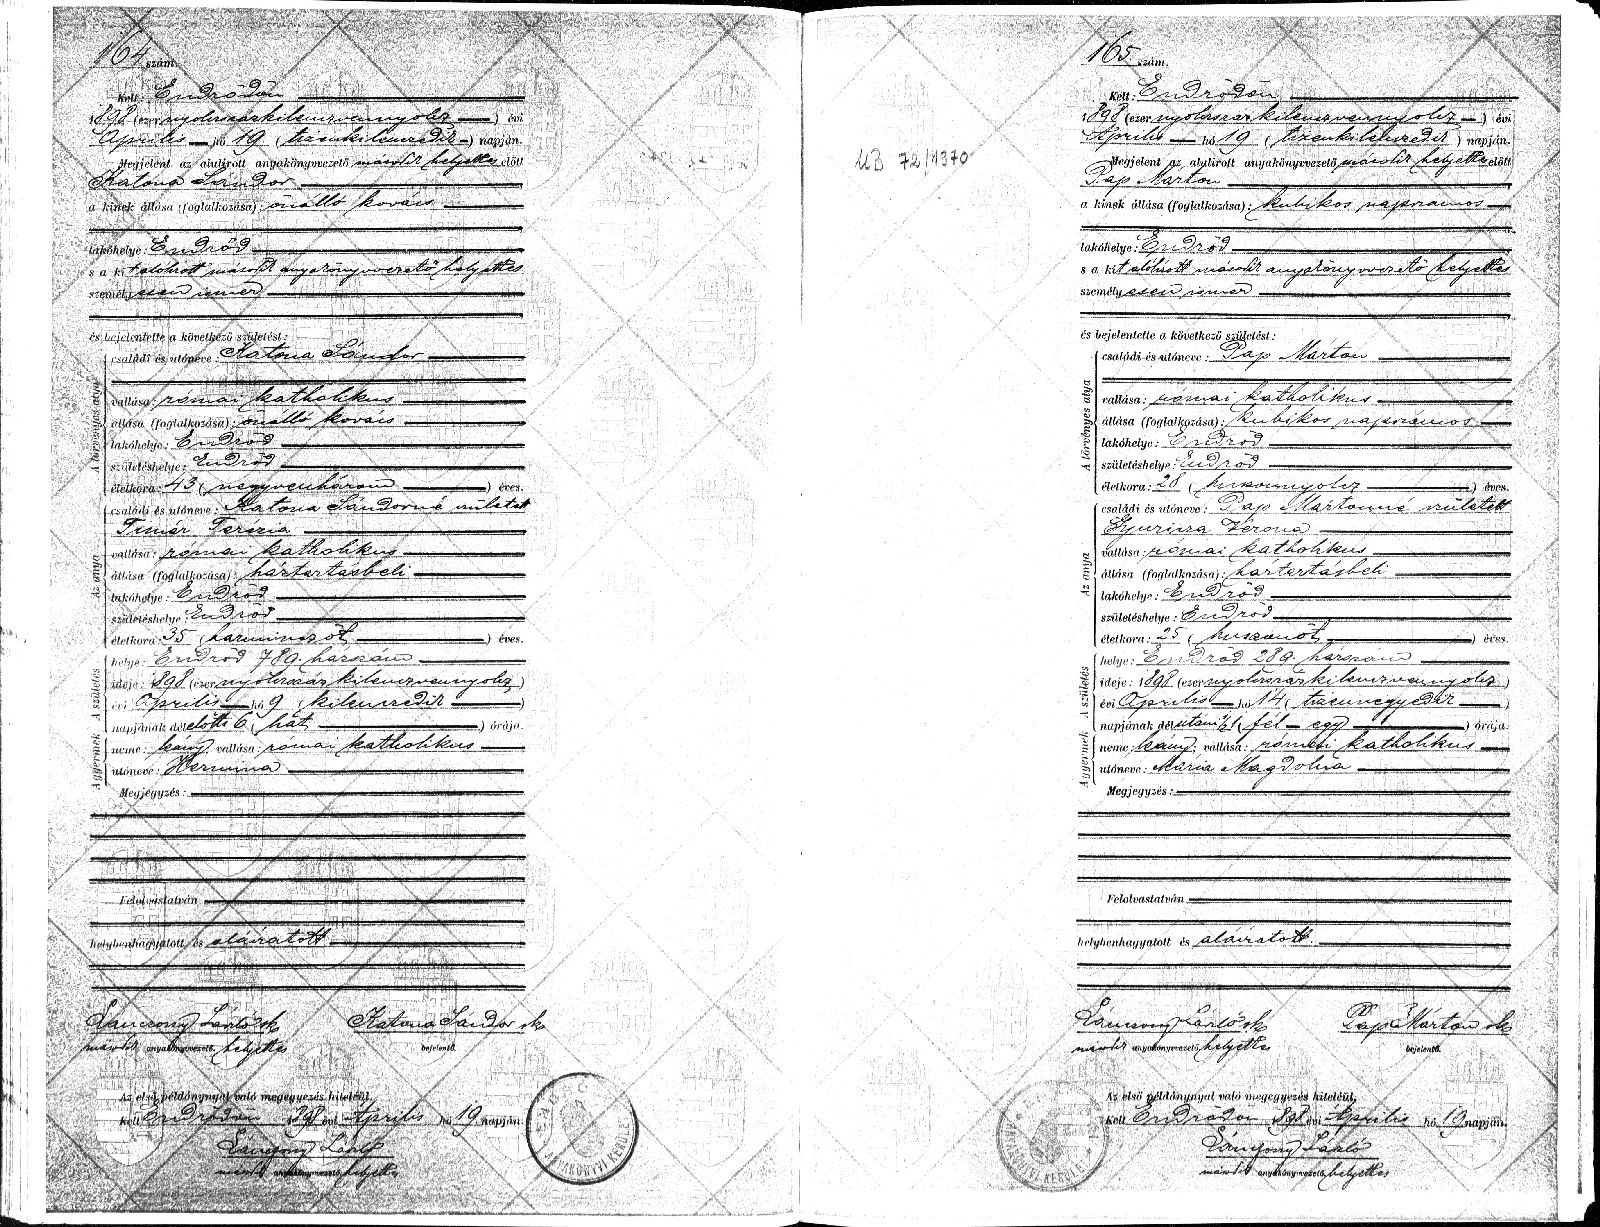 164 szám.
Kelt: Endrődön
1898 (ezer nyolcszázkilenczvennyolcz) évi
Április hó 19 (tizenkilenczedik) napján.
Megjelent az alulirott anyakönyvvezető második helyettes előtt
Katona Sándor
a kinek állása (foglalkozása): önálló kovács
lakóhelye: Endrőd
s a kit alólirott másodk anyakönyvvezető helyettes
személyesen ismer
és bejelentette a következő születést:
A törvényes atya
családi és utóneve: Katona Sándor
vallása: római katholikus
állása (foglalkozása): önálló kovács
lakóhelye: Endrőd
születéshelye: Endrőd
életkora: 43 (negyvenhárom) éves.
Az anya
családi és utóneve: Katona Sándorné született
Timár Terézia
vallása: római katholikus
állása (foglalkozása): háztartásbeli
lakóhelye: Endrőd
születéshelye: Endrőd
életkora: 35 (harminczöt) éves.
A születés
helye: Endrőd 789 házszám
ideje: 1898 (ezer nyolczszáz kilenczvennyolcz)
évi Április hó 9 (kilenczedik)
napjának délelőtti 6 (hat) órája.
A gyermek
neme: leány; vallása: római katholikus
utóneve: Hermina
Megjegyzés:
Felolvastatván
helybenhagyatott és aláiratott
Lánczony László sk Katona Sándor sk
másodk anyakönyvvezető helyettes bejelentő.
Az első példánynyal való megegyezés hiteléül,
Kelt Endrődön 1898 évi Április hó 19 napján.
Lánczony László
másodk anyakönyvvezető helyettes
MB 72/1370
165 szám.
Kelt: Endrődön
1898 (ezer nyolczszáz kilenczvennyolcz) évi
Április hó 19 (tizenkilenczedik) napján.
Megjelent az alulirott anyakönyvvezető másodk helyettes előtt
Pap Márton
a kinek állása (foglalkozása): kubikos napszámos
lakóhelye: Endrőd
s a kit alólirott másodk anyakönyvvezető helyettes
személyesen ismer
és bejelentette a következő születést:
A törvényes atya
családi és utóneve: Pap Márton
vallása: római katholikus
állása (foglalkozása): kubikos napszámos
lakóhelye: Endrőd
születéshelye: Endrőd
életkora: 28 (huszonnyolcz) éves.
Az anya
családi és utóneve: Pap Mártonné született
Gyuricza Verona
vallása: római katholikus
állása (foglalkozása): háztartásbeli
lakóhelye: Endrőd
születéshelye: Endrőd
életkora: 25 (huszonöt) éves.
A születés
helye: Endrőd 289 házszám
ideje: 1898 (ezer nyolczszáz kilenczvennyolcz)
évi Április hó 14 (tizennegyedik)
napjának délutáni ½1 (fél egy) órája.
A gyermek
neme: leány; vallása: római katholikus
utóneve: Mária Magdolna
Megjegyzés:
Felolvastatván
helybenhagyatott és aláiratott.
Lánczony László sk Pap Márton sk
másodk anyakönyvvezető helyettes bejelentő.
Az első példánynyal való megegyezés hiteléül,
Kelt Endrődön 1898 évi Április hó 19 napján.
Lánczony László
másodk anyakönyvvezető helyettes